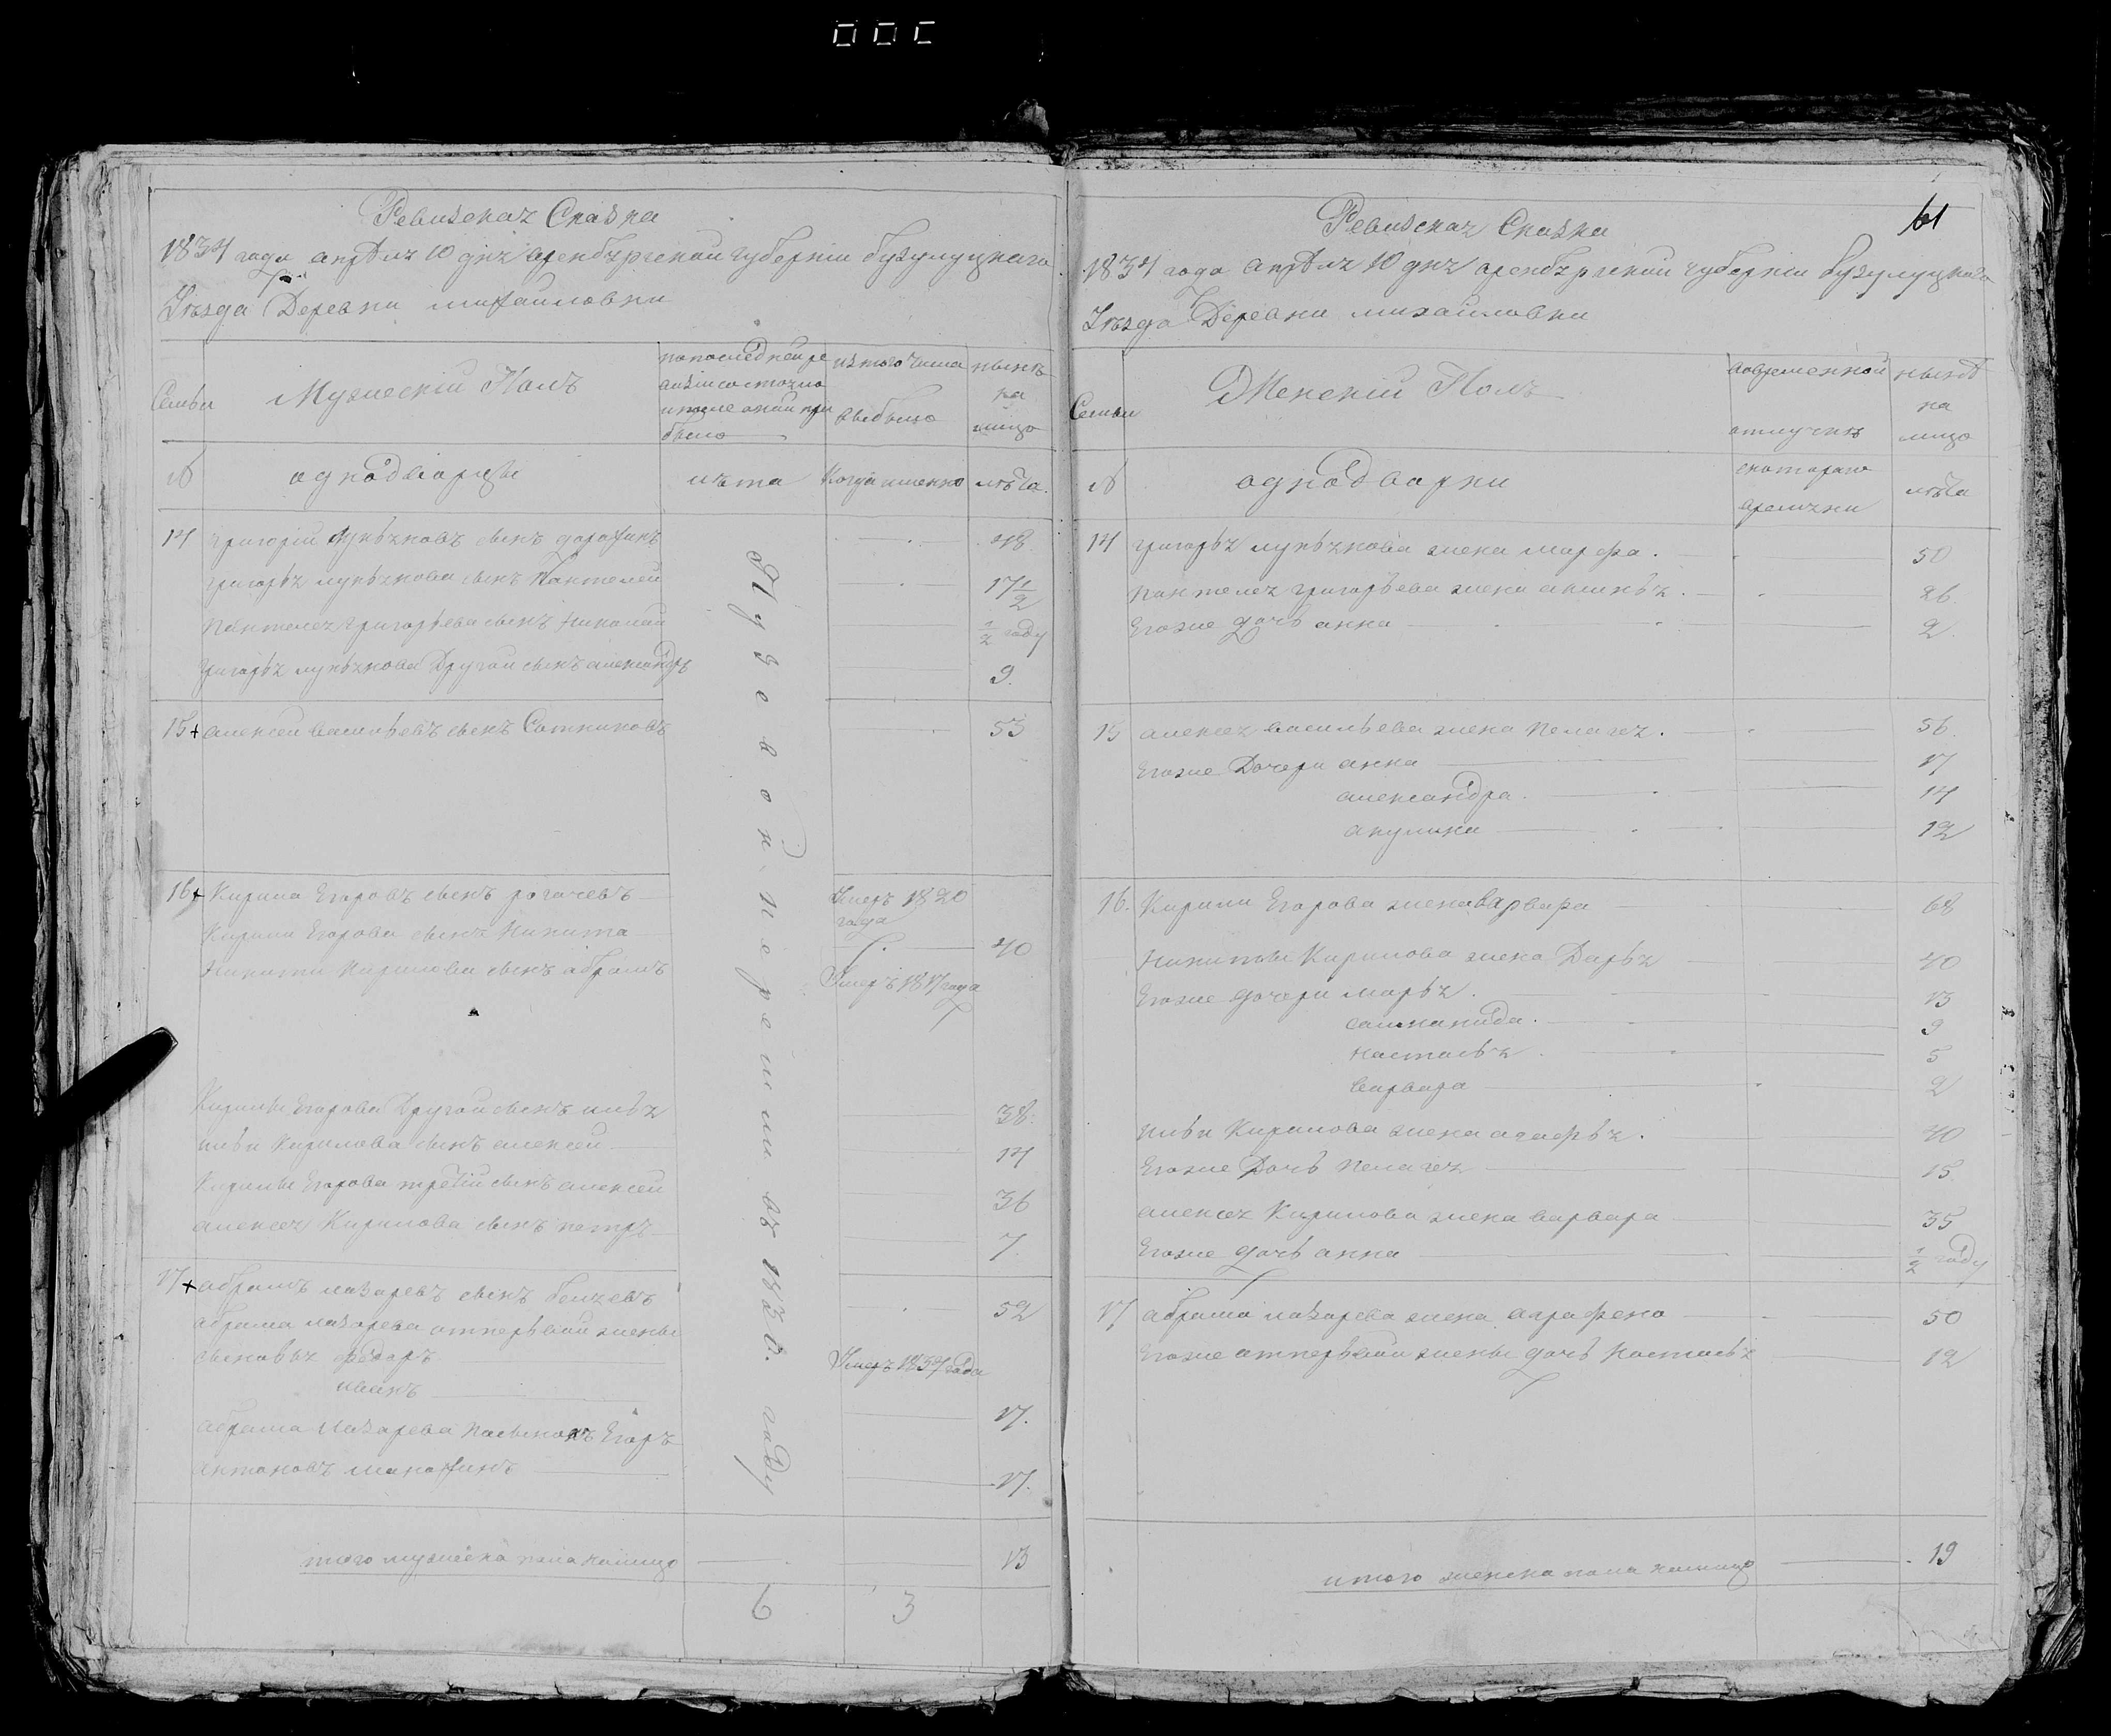 Ревизская Сказка
1834 года апреля 10 дня оренбургской губернии бузулуцкаго
Уезда Деревни михайловки
Семьи
Мужеской Полъ
по последней ре
визии состояло
и после оной при
было
изтого числа
выбыло
ныне
на
лицо
№
однодворцы
лѣта
Когда именно
лѣта.
14 григорій лукьяновъ сынъ
48
григорья лукьянова сынъ Пантелей
17 1/2
Пантелея григорьева сынъ николай
1/2 году
григорья лукьянова Другой сынъ александръ
9.
15 алексей васильевъ сынъ Сотниковъ
53
16 Кирила Егоровъ сынъ рогачевъ
Умеръ 1820
года
Кирилы Егорова сынъ Никита
40
Никиты Кирилова сынъ абрамъ
Умеръ года
Кирилы Егорова Другой сынъ илья
38.
ильи Кирилова сынъ алексей
14
Кирилы Егорова третій сынъ алексей
36
алексея Кирилова сынъ петръ
7.
17 абрамъ лазаревъ сынъ беляевъ
52
абрама лазарева отпервой жены
сыновья федоръ
Умеръ года
иванъ
17.
абрама лазарева Пасынокъ Егоръ
антоновъ
17.
Нузевой перешли въ году
итого мужеска пола налицо
13
6 3
61
Ревизская Сказка
1834 года апреля 10 дня оренбургской губернии бузулуцкаго
Уезда Деревни михайловки
Семьи
Женскій Полъ
вовременной
отлучкѣ
нынѣ
на
лицо
№
однодворки
скотораго
времяни
лѣта
14 григорья лукьянова жена марфа.
50
Пантелея григорьева жена аксинья.
26
Егоже дочь анна
2.
15 алексея васильева жена Пелагея.
56.
Егоже Дочери анна
17
александра.
14
акулина
12
16. Кирилы Егорова жена варвара
68
никиты Кирилова жена Дарья
40
Егоже дочери марья.
13
саломанида.
9
настасья.
5
варвара
2
ильи Кирилова жена агафья.
40
Егоже Дочь Пелагея
15.
алексея Кирилова жена варвара
35
Егоже дочь анна
1/2 году
17 абрама лазарева жена аграфена
50
Егоже отпервой жены дочь настасья
12
итого женска пола налицо
19